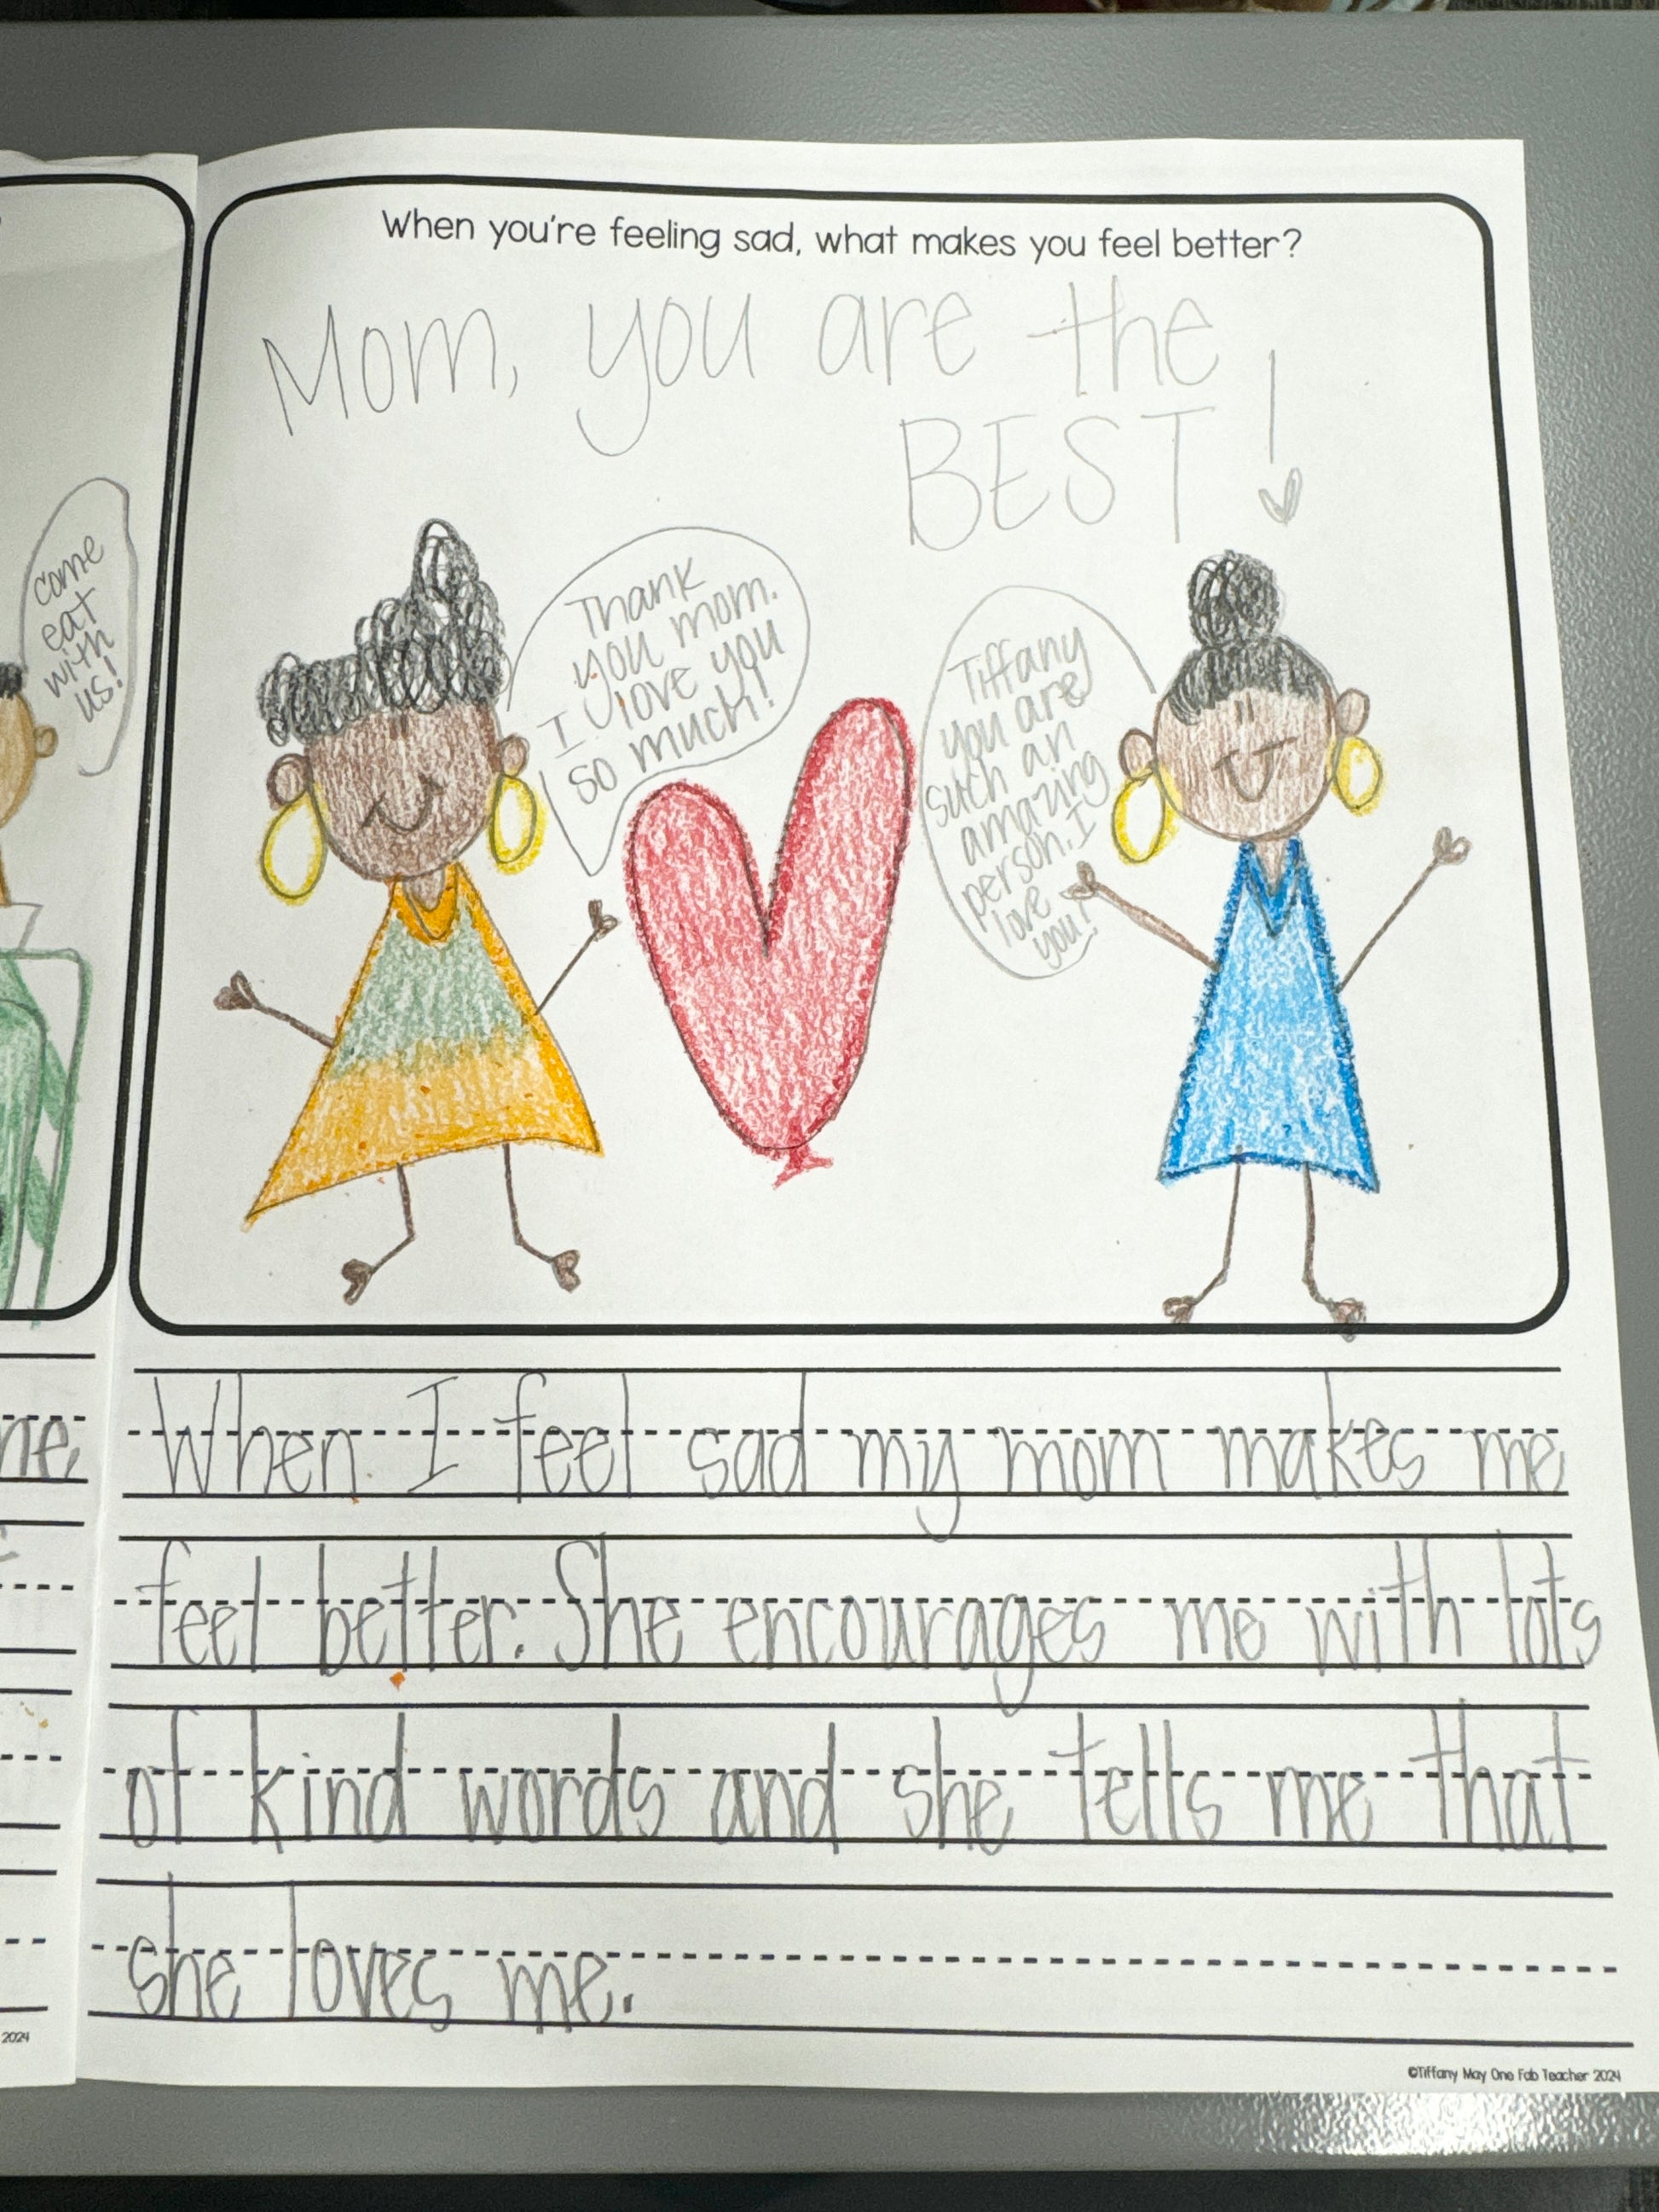 When you're feeling sad, what makes you feel better?
Mom, you are the
BEST!
come
eat
with
us!
Thank
you mom.
I love you
so much!
Tiffany
you are
such an
amazing
person. I
love
you!
ne
When I feel sad my mom makes me
feel better. She encourages me with lots
of kind words and she tells me that
she loves me.
2024
©Tiffany May One Fab Teacher 2024